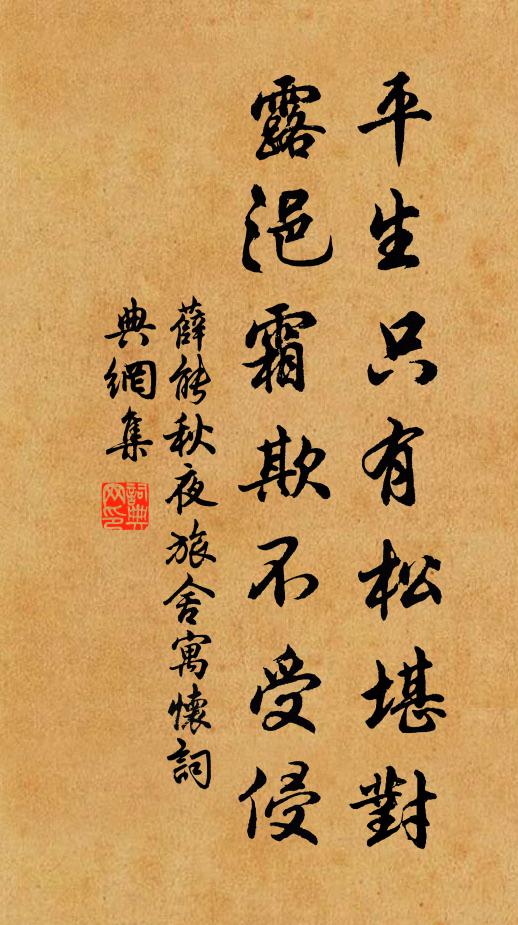 平生只有松堪對
露浥霜欺不受侵
薛能秋夜旅舍寓懷詞
典網集
詞典
网印